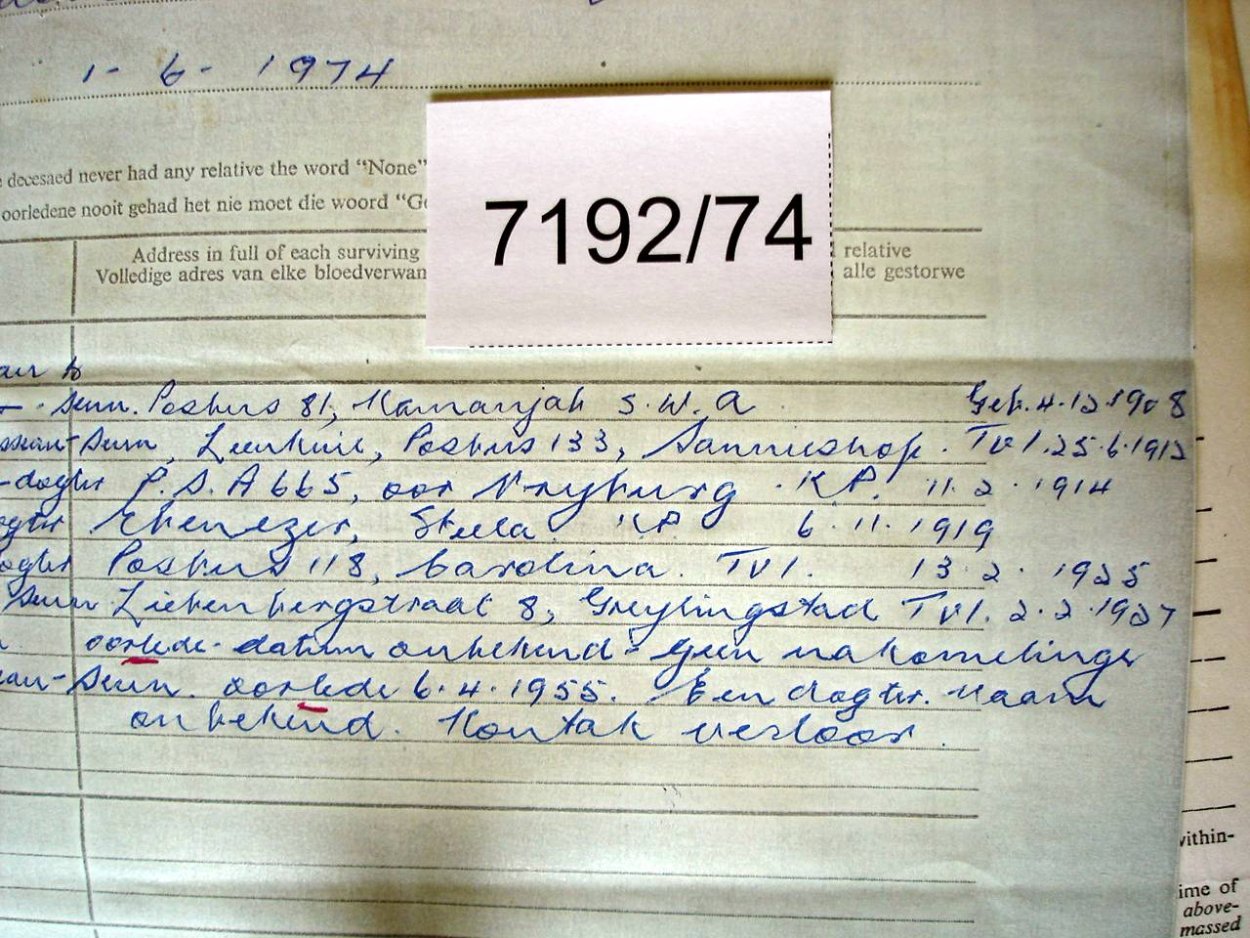 1 - 6 - 1974
7192/74
decesaed never had any relative the word "None"
oorledene nooit gehad het nie moet die woord "Ge
Address in full of each surviving relative
Volledige adres van elke bloedverwan alle gestorwe
Seun. Posbus 81, Kamanjab S.W.A. Geb. 4.12.1908
Seun, Posbus 133, Sannieshof. Tvl. 25.6.1912
-dogter P.S.A 665, oor Vryburg. K.P. 11.2.1914
ogter Ebenezer, Stella K.P. 6.11.1919
ogter Posbus 118, Carolina. Tvl. 13.2.1925
Seun Liebenbergstraat 8, Greylingstad Tvl. 2.2.1927
oorlede - datum onbekend - geen nakomelinge
Seun. oorlede 6.4.1955. Een dogter. Naam
onbekend. Kontak verloor.
within-
ime of
above-
massed